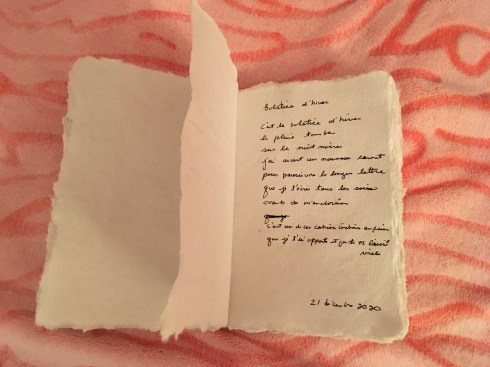 Solstice d'hiver
C'est le solstice d'hiver
la pluie tombe
sur la nuit noire
j'ai ouvert un nouveau carnet
pour poursuivre la longue lettre
que je t'écris tous les soirs
avant de m'endormir
C'est un de ces cahiers indiens en papier
que je t'ai apporté et que tu as laissé
vide
21 décembre 2020